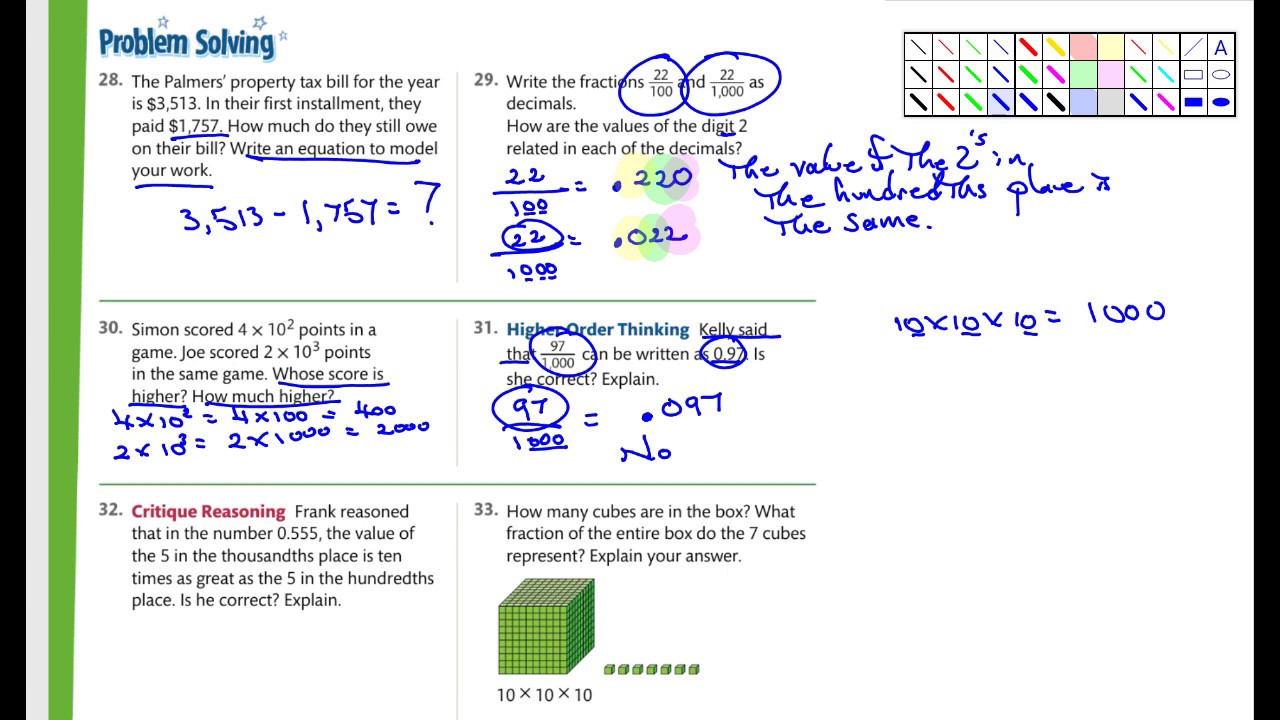 Problem Solving
28. The Palmers' property tax bill for the year
is $3,513. In their first installment, they
paid $1,757. How much do they still owe
on their bill? Write an equation to model
your work.
3,513 - 1,757 = ?
29. Write the fractions 22/100 and 22/1,000 as
decimals.
How are the values of the digit 2
related in each of the decimals?
22/100 = .220
22/1000 = .022
The value of The 2's in
The hundredths place is
The same.
A
30. Simon scored 4 × 10² points in a
game. Joe scored 2 × 10³ points
in the same game. Whose score is
higher? How much higher?
4 × 10² = 4 × 100 = 400
2 × 10³ = 2 × 1000 = 2000
31. Higher Order Thinking Kelly said
that 97/1,000 can be written as 0.97. Is
she correct? Explain.
97/1000 = .097
No
10 × 10 × 10 = 1000
32. Critique Reasoning Frank reasoned
that in the number 0.555, the value of
the 5 in the thousandths place is ten
times as great as the 5 in the hundredths
place. Is he correct? Explain.
33. How many cubes are in the box? What
fraction of the entire box do the 7 cubes
represent? Explain your answer.
10 × 10 × 10